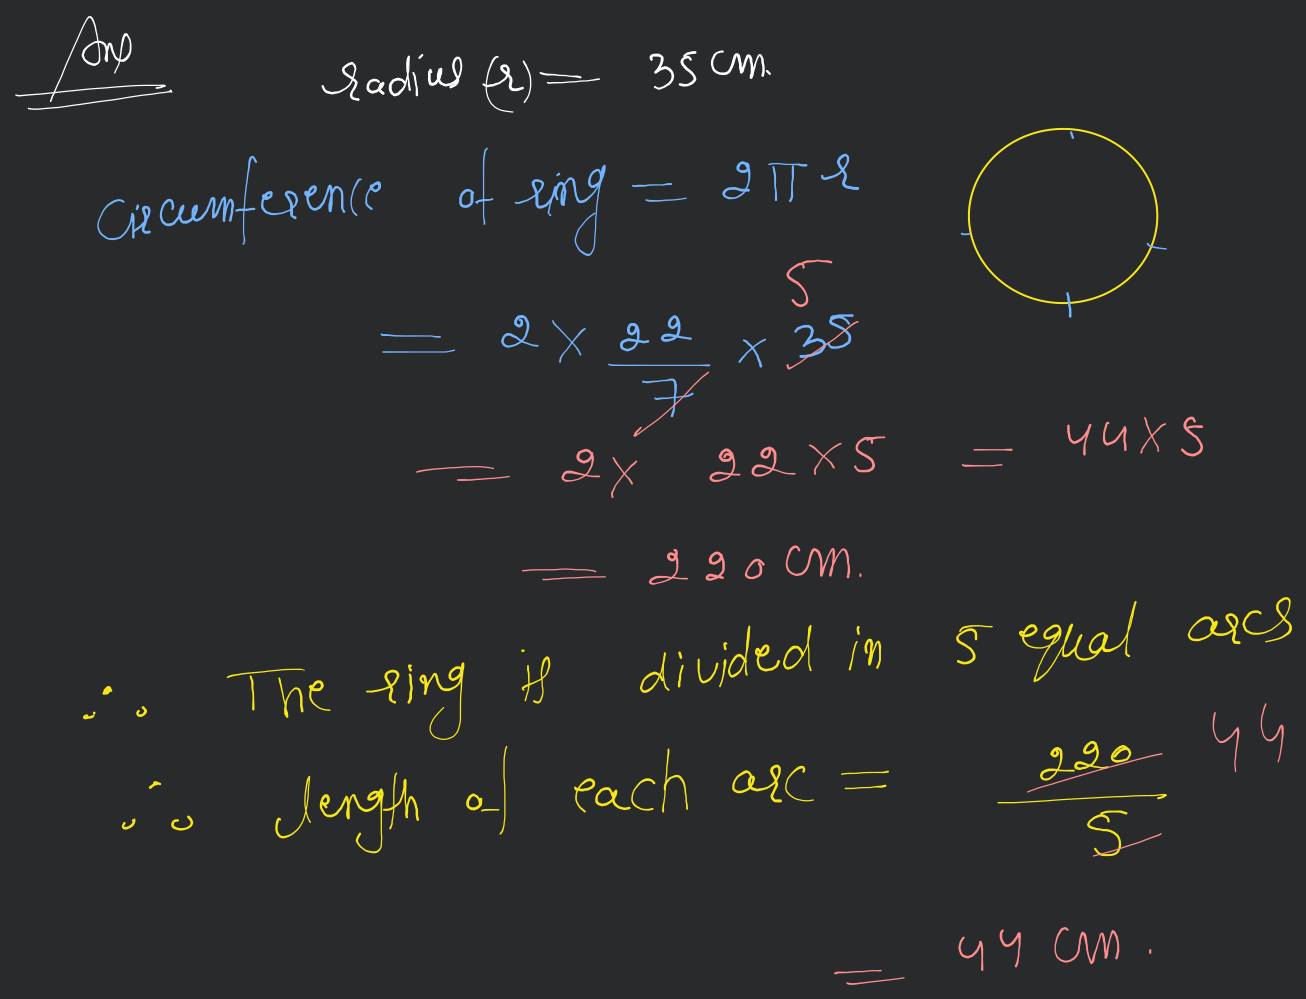 Ans radius (r) = 35 cm.
Circumference of ring = 2πr
= 2 × 22/7 × 35 5
= 2 × 22 × 5 = 44 × 5
= 220 cm.
∵ The ring is divided in 5 equal arcs
∴ length of each arc = 220/5 44
= 44 cm.